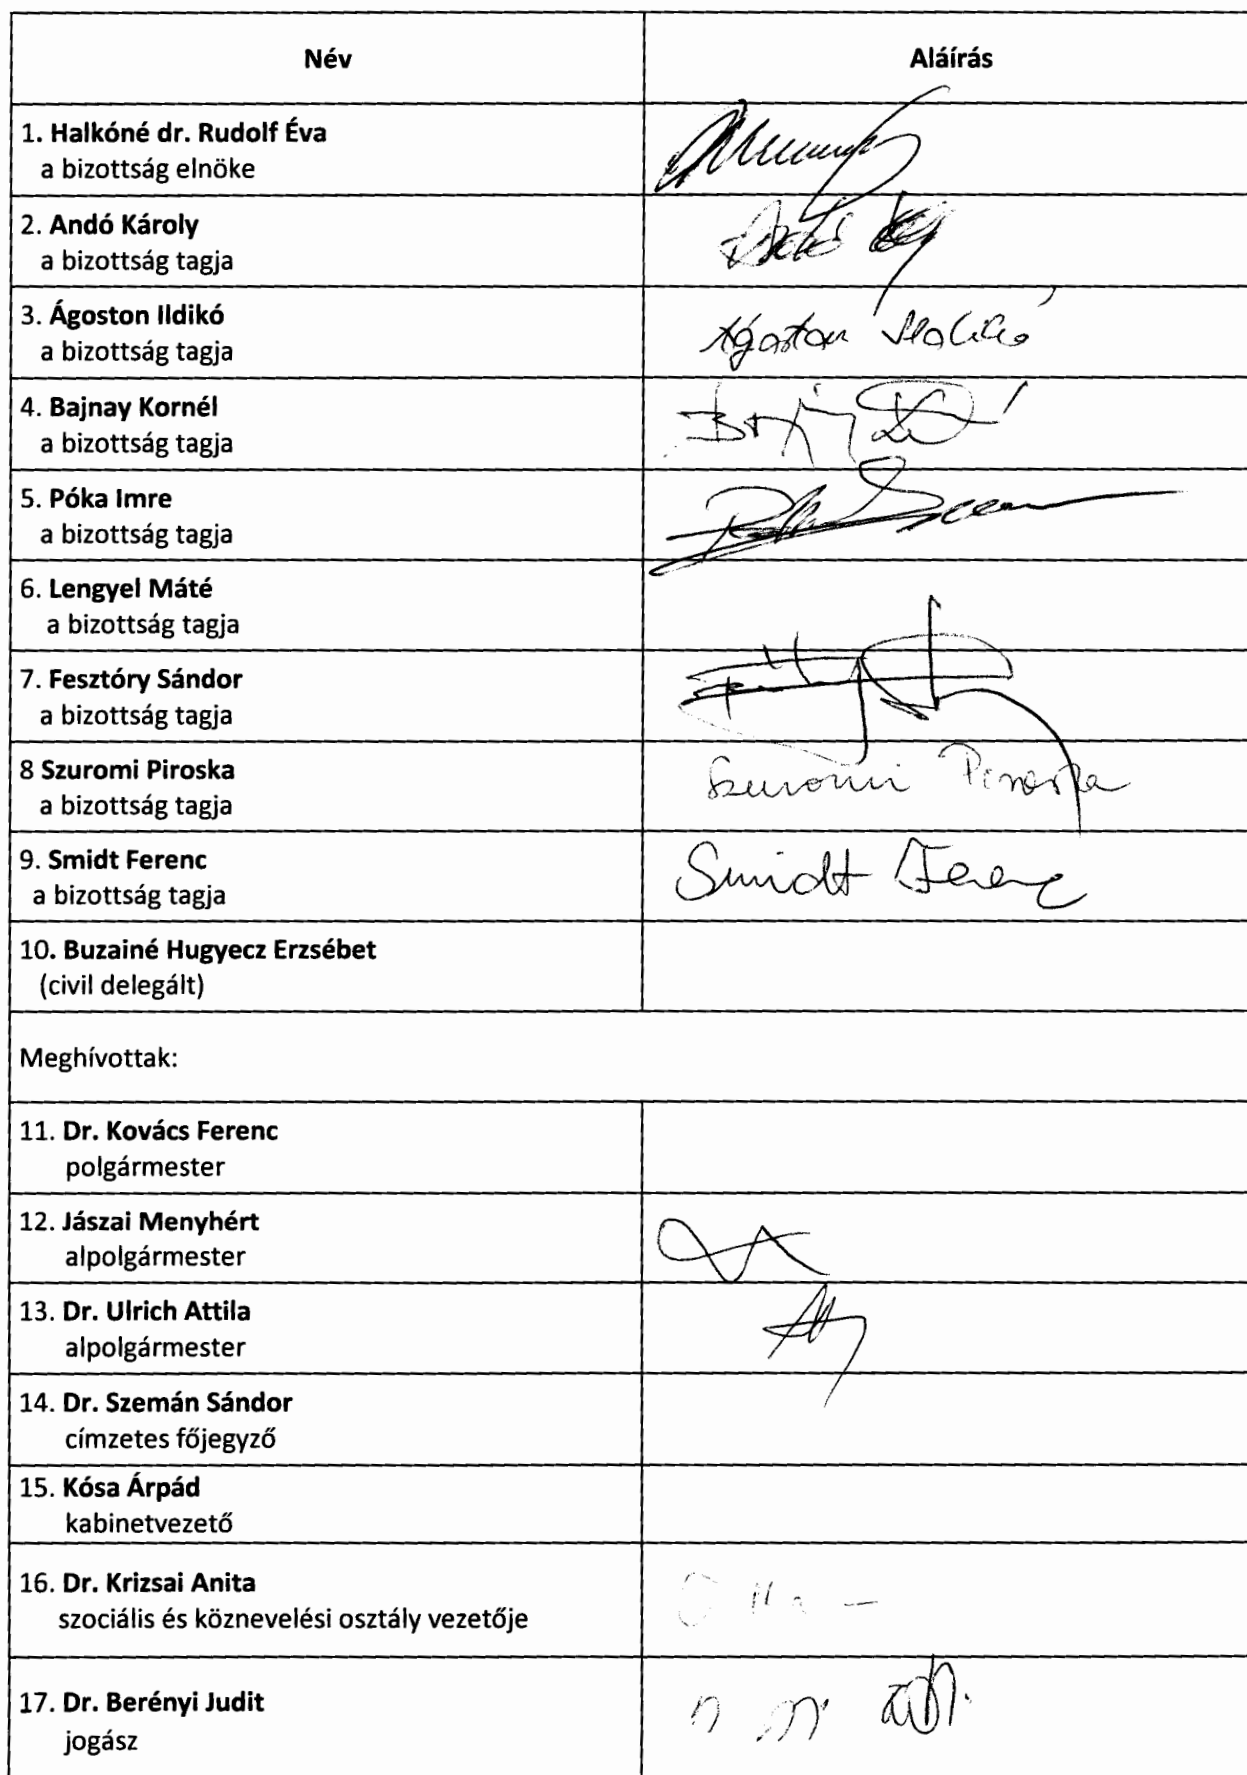 Név Aláírás
1. Halkóné dr. Rudolf Éva
a bizottság elnöke
2. Andó Károly
a bizottság tagja
3. Ágoston Ildikó Ágoston Ildikó
a bizottság tagja
4. Bajnay Kornél
a bizottság tagja
5. Póka Imre
a bizottság tagja
6. Lengyel Máté
a bizottság tagja
7. Fesztóry Sándor
a bizottság tagja
8 Szuromi Piroska Szuromi Piroska
a bizottság tagja
9. Smidt Ferenc Smidt Ferenc
a bizottság tagja
10. Buzainé Hugyecz Erzsébet
(civil delegált)
Meghívottak:
11. Dr. Kovács Ferenc
polgármester
12. Jászai Menyhért
alpolgármester
13. Dr. Ulrich Attila
alpolgármester
14. Dr. Szemán Sándor
címzetes főjegyző
15. Kósa Árpád
kabinetvezető
16. Dr. Krizsai Anita
szociális és köznevelési osztály vezetője
17. Dr. Berényi Judit
jogász